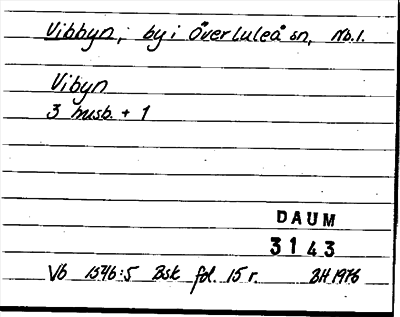 Vibbyn, by i Överluleå sn, Nb.l.
Vibyn
3 husb. + 1
DAUM
3143
Vb 1546:5 Bsk fol. 15 r. BH 1976